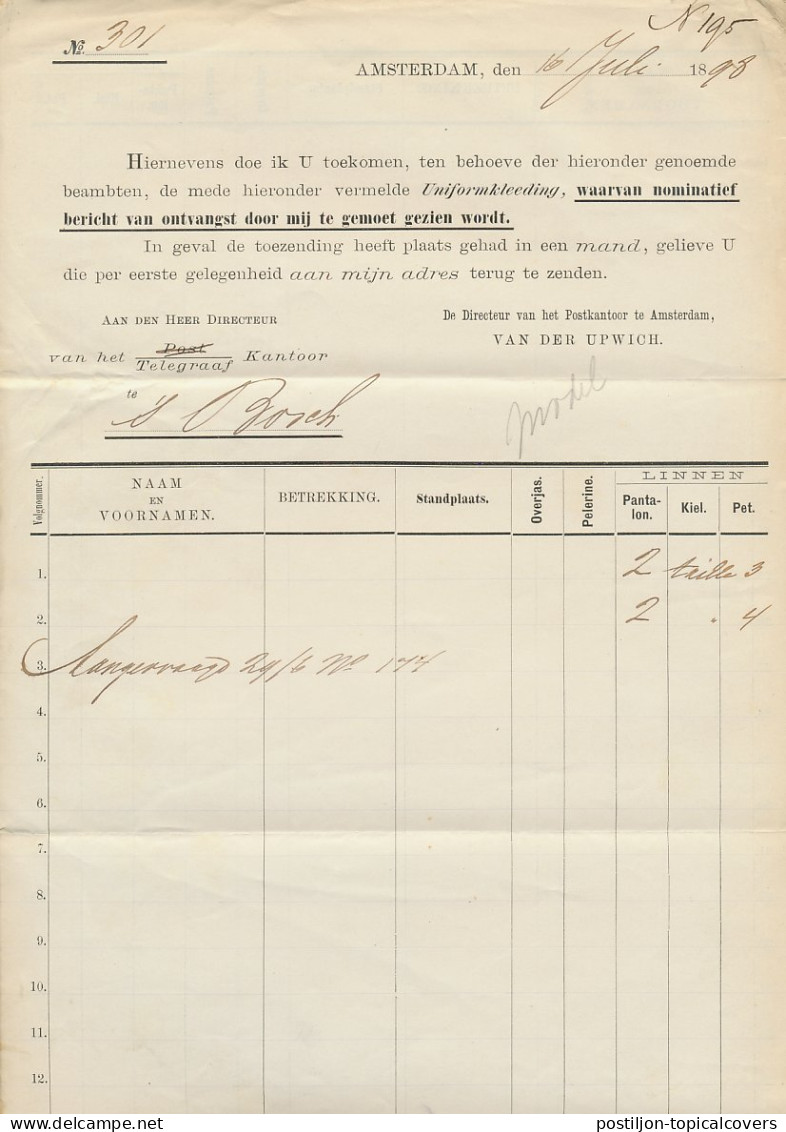 N 195
No. 301
AMSTERDAM, den 16 Juli 1898
Hiernevens doe ik U toekomen, ten behoeve der hieronder genoemde
beambten, de mede hieronder vermelde Uniformkleeding, waarvan nominatief
bericht van ontvangst door mij te gemoet gezien wordt.
In geval de toezending heeft plaats gehad in een mand, gelieve U
die per eerste gelegenheid aan mijn adres terug te zenden.
AAN DEN HEER DIRECTEUR
De Directeur van het Postkantoor te Amsterdam,
VAN DER UPWICH.
van het Post Telegraaf Kantoor
te
's Bosch
model
Volgnommer.
NAAM
EN
VOORNAMEN.
BETREKKING.
Standplaats.
Overjas.
Pelerine.
LINNEN
Panta-
lon.
Kiel.
Pet.
1. 2 taille 3
2. 2 " 4
3. Aangevraagd 29/6 No 177
4.
5.
6.
7.
8.
9.
10.
11.
12.
postiljon-topicalcovers